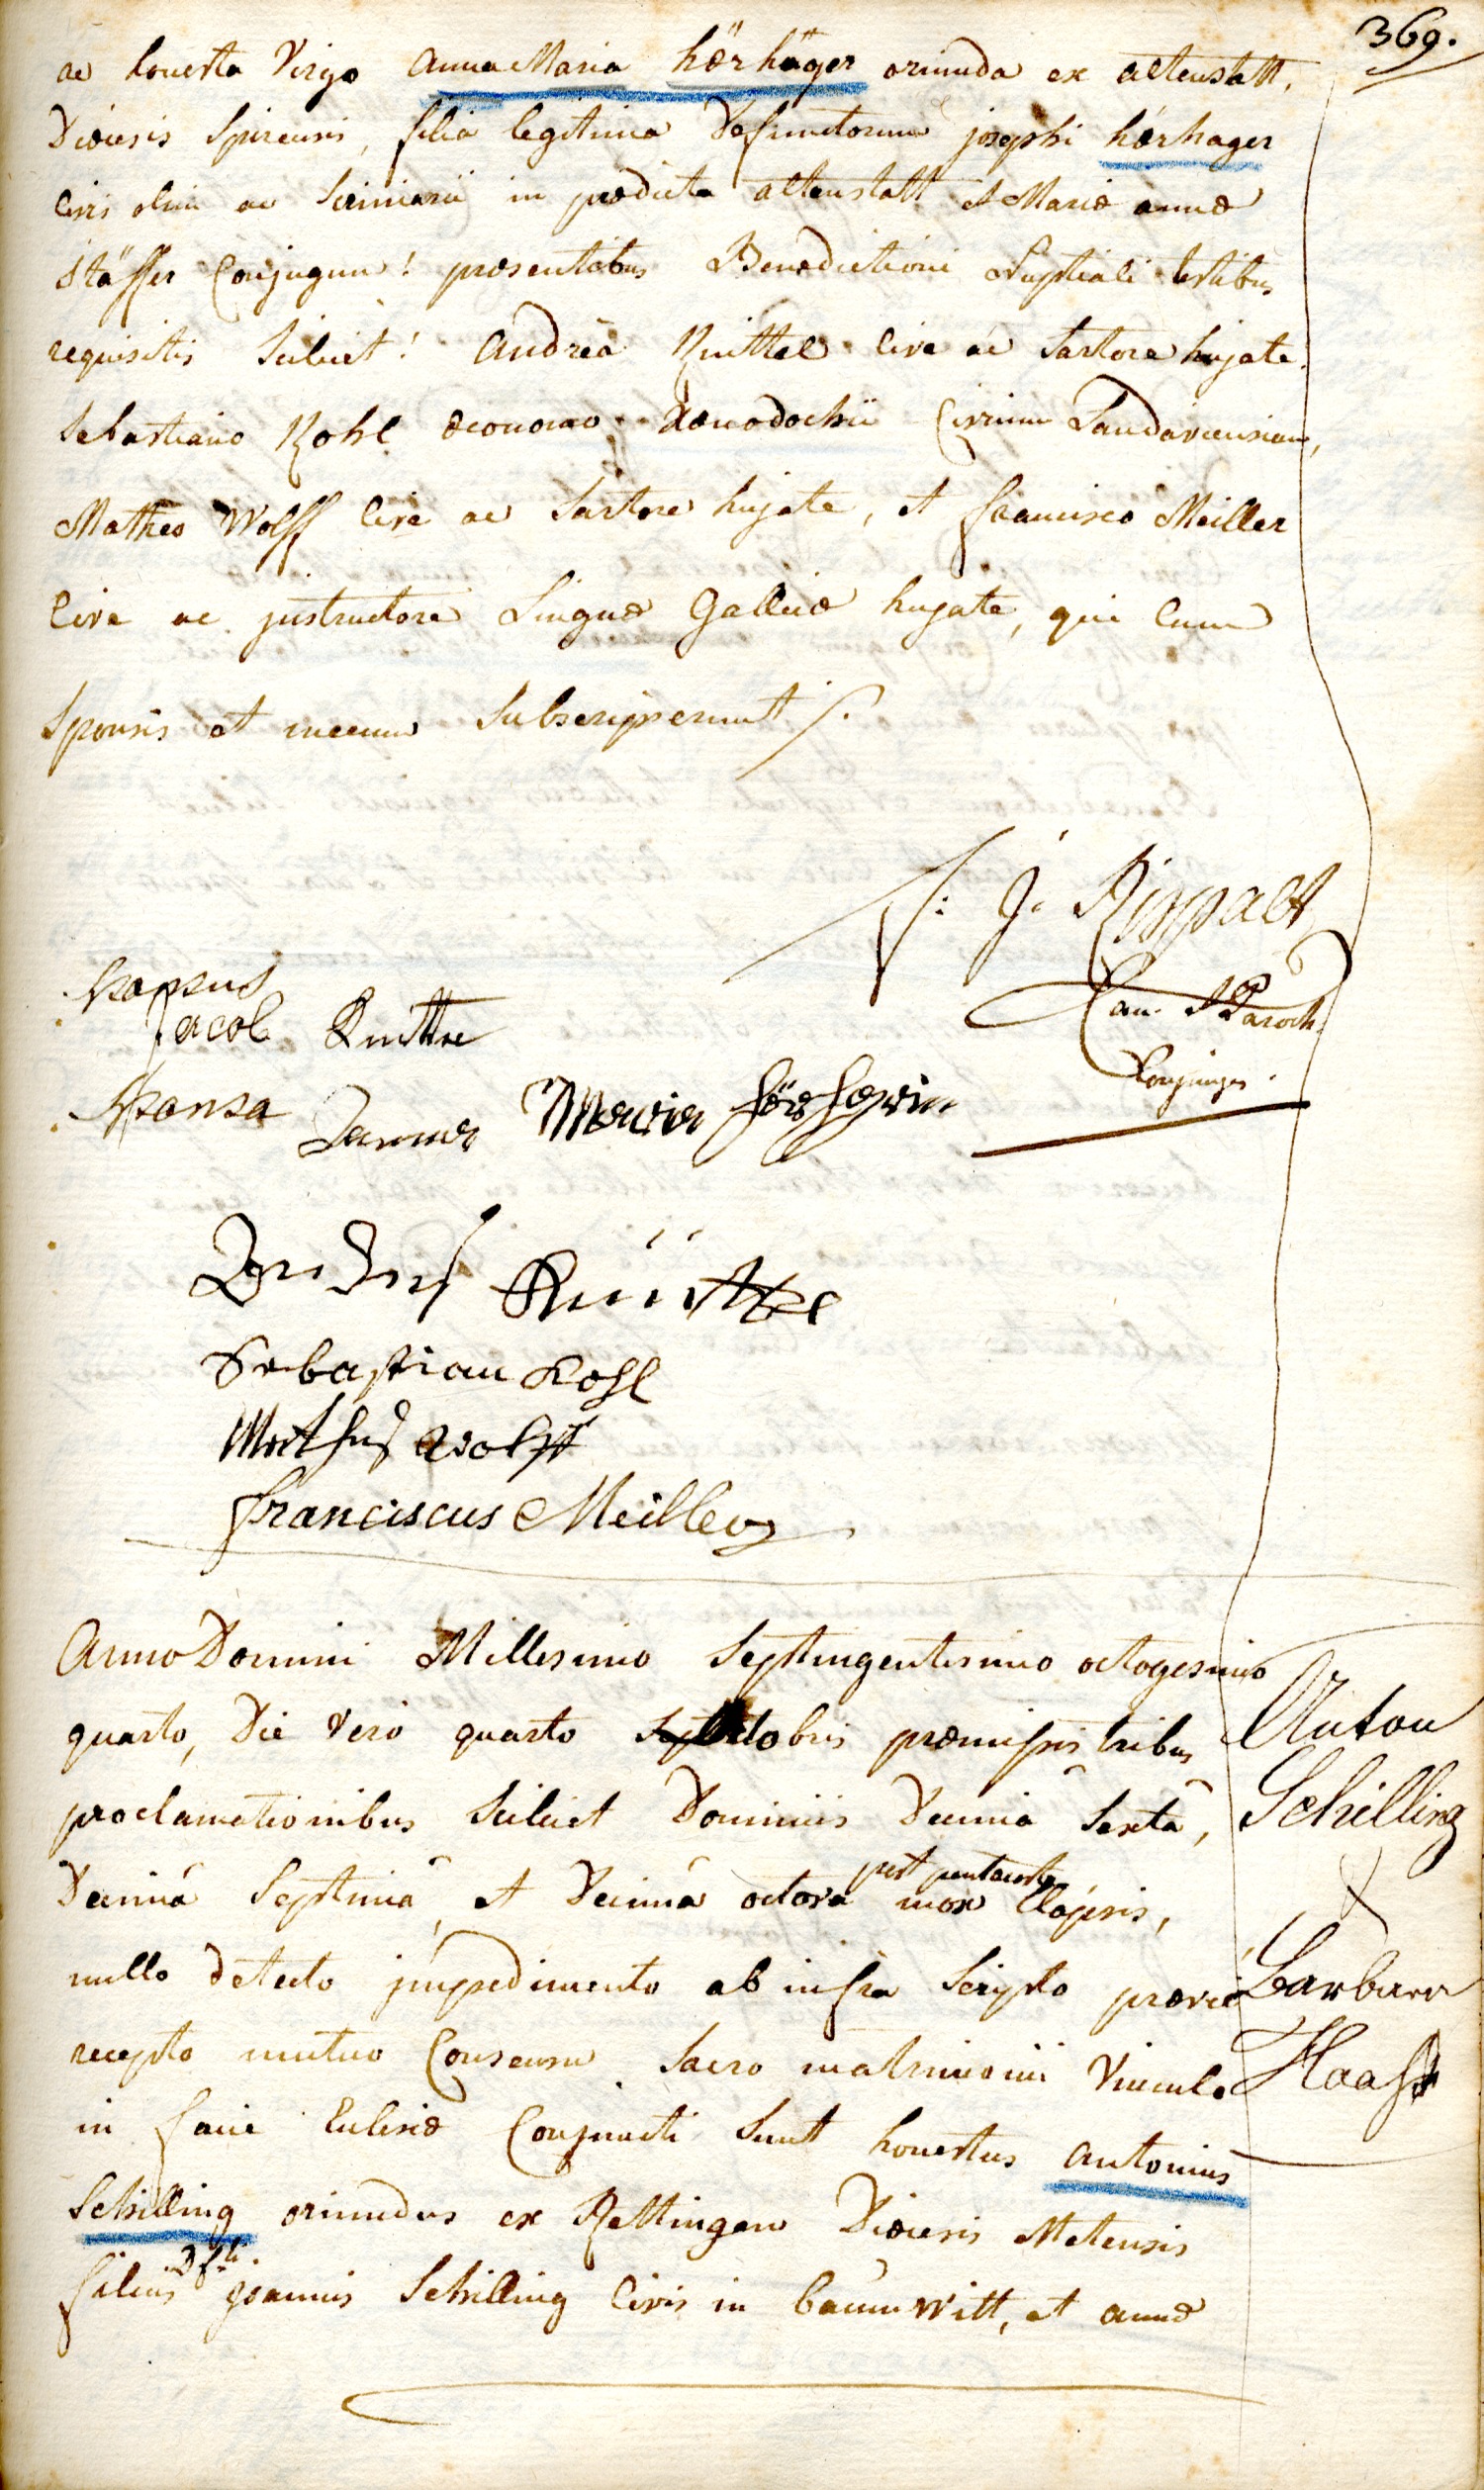 369.
ac honesta Virgo Anna Maria hörhäger oriunda ex altenstatt,
Dioecesis Spirensis, filia legitima Defunctorum josephi hörhager
Civis olim ac Scriniarii in prædicta altenstatt et Mariæ annæ
Stäffer Conjugum! præsentibus Benedictioni Nuptiali testibus
requisitis Scilicet! Andreä Knittel Cive ac Sartore hujate.
Sebastiano Kohl æconomo Xenodochii Civium Landaviensium,
Matheo Wolff Cive ac Sartore hujate, et francisco Meiller
Cive ac jnstructore Linguæ Gallicæ hujate, qui Cum
Sponsis et mecum Subscripserunt
J: J. Rispalt
Can. & Paroch.
Sponsus
Jacob Knittel
Sponsa
Maria
Sebastian Kohl
Mathes Wolff
franciscus Meiller
Anno Domini Millesimo Septingentesimo octogesimo
quarto, Die Vero quarto octobris præmissis tribus
proclamationibus Scilicet Dominicis Decimâ Sextâ,
Decimâ Septimâ, et Decimâ octavâ post pentecosten mox Elapsis,
nullo detecto jmpedimento ab infra Scripto prævie
recepto mutuo Consensu Sacro matrimonii Vinculo
in facie Ecclesiæ Conjuncti Sunt honestus Antonius
Schilling oriundus ex Rettingen Dioecesis Metensis
filius Dfti. Joannis Schilling Civis in baumwitt, et annæ
Anton
Schilling
&
Barbara
Haass